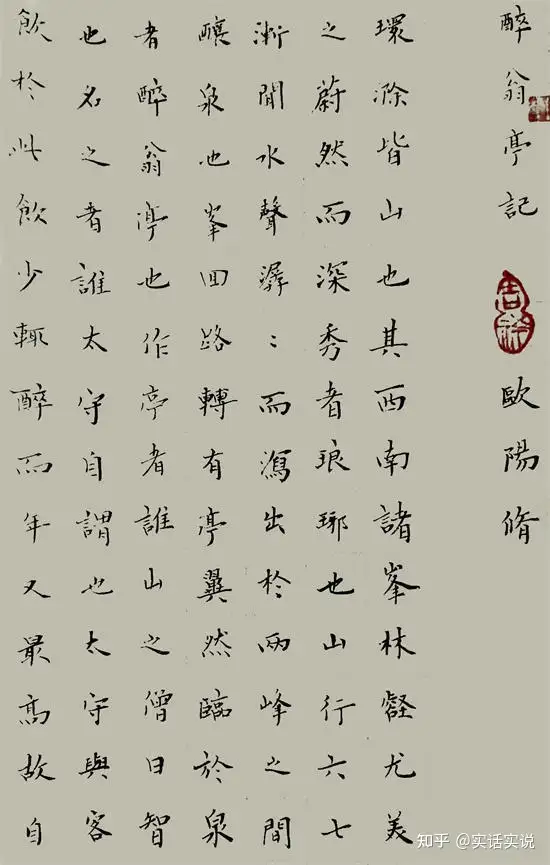 醉翁亭記 吉祥 歐陽脩
環滁皆山也其西南諸峯林壑尤美
之蔚然而深秀者琅琊也山行六七
漸聞水聲潺〻而瀉出於兩峰之間
釀泉也峯回路轉有亭翼然臨於泉
者醉翁亭也作亭者誰山之僧曰智
也名之者誰太守自謂也太守與客
飲於此飲少輒醉而年又最高故自
知乎 @实话实说